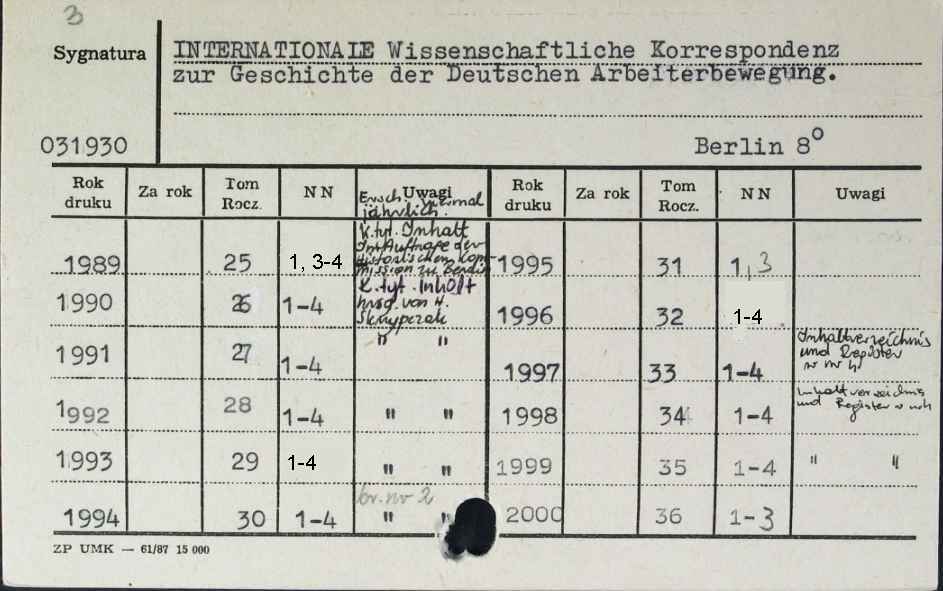 3
Sygnatura
INTERNATIONALE Wissenschaftliche Korrespondenz
zur Geschichte der Deutschen Arbeiterbewegung.
031930
Berlin 8°
Rok druku Za rok Tom Rocz. NN Uwagi Rok druku Za rok Tom Rocz. NN Uwagi
Ersch. viermal
jährlich.
K. tyt. Inhalt
Im Auftrage der
Historischen Kom-
mission zu Berlin
1989 25 1, 3-4 1995 31 1,3
K. tyt. Inhalt
hrsg. von H.
1990 26 1-4 1996 32 1-4
Inhaltverzeichnis
und Register
w nr 4
1991 27 1-4 " " 1997 33 1-4
Inhaltverzeichnis
und Register w nr 4
1992 28 1-4 " " 1998 34 1-4
1993 29 1-4 " " 1999 35 1-4 " "
br. nr 2
1994 30 1-4 " " 2000 36 1-3
ZP UMK — 61/87 15 000